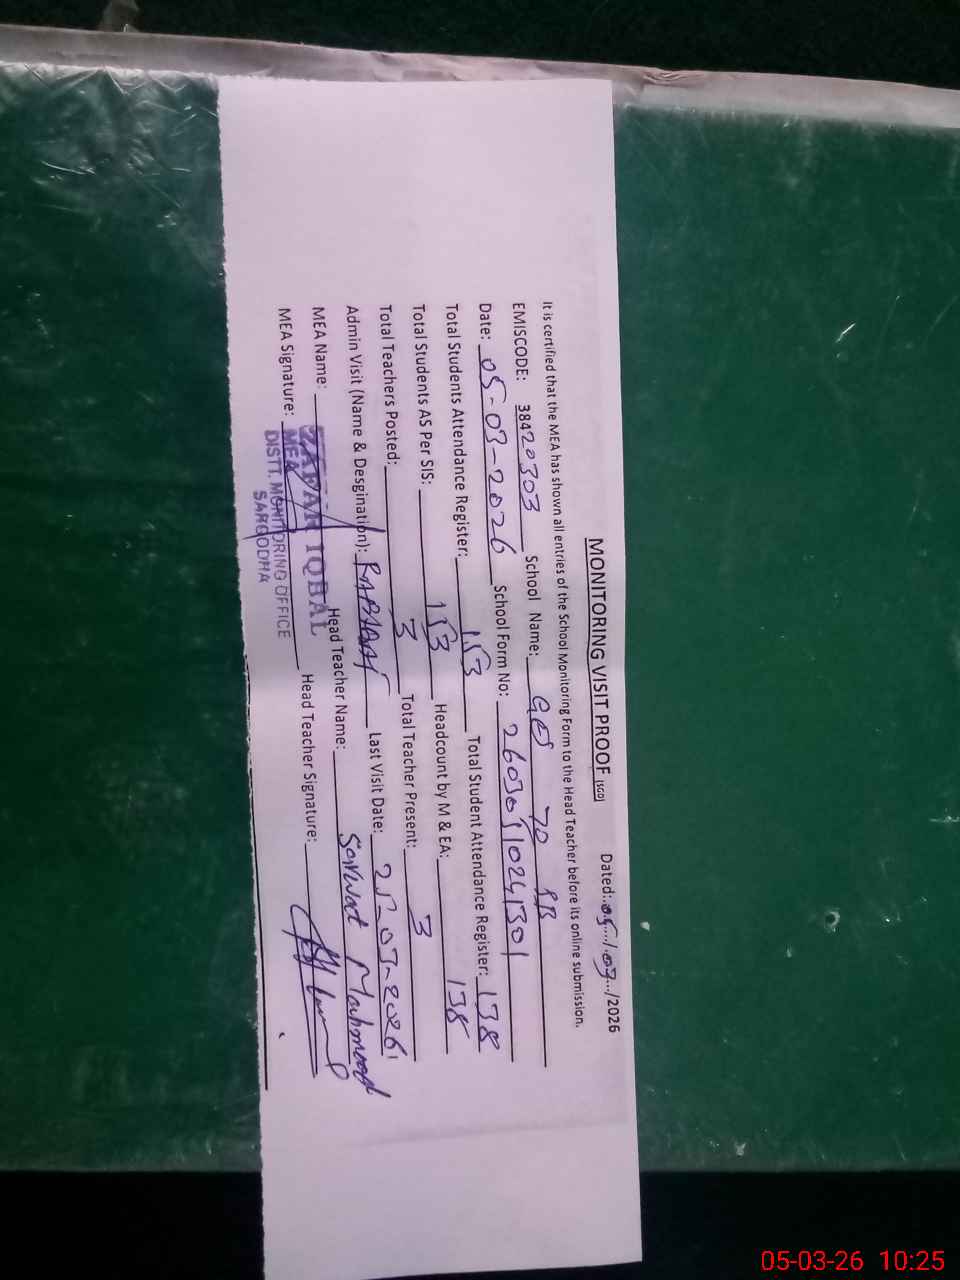 MONITORING VISIT PROOF (SGD) Dated: 05/03/2026
It is certified that the MEA has shown all entries of the School Monitoring Form to the Head Teacher before its online submission.
EMISCODE: 38420303 School Name: GPS 70 SB
Date: 05-03-2026 School Form No: 26030510241301
Total Students Attendance Register: 153 Total Student Attendance Register: 138
Total Students AS Per SIS: 153 Headcount by M & EA: 138
Total Teachers Posted: 3 Total Teacher Present: 3
Admin Visit (Name & Desgination): Last Visit Date:
MEA Name: ZAFAR IQBAL Head Teacher Name: Sarwat Mahmood
MEA Signature: Head Teacher Signature:
MEA
DISTT. MONITORING OFFICE
SARGODHA
05-03-26 10:25